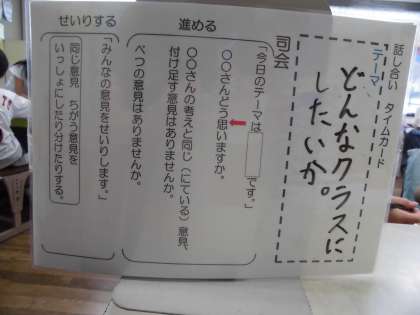 話し合い タイムカード
テーマ
どんなクラスに
したいか。
司会
「今日のテーマは です。」
〇〇さんどう思いますか。
〇〇さんの考えと同じ(にている)意見、
付け足す意見はありませんか。
べつの意見はありませんか。
進める
「みんなの意見をせいりします。」
同じ意見 ちがう意見を
いっしょにしたり分けたりする。
せいりする